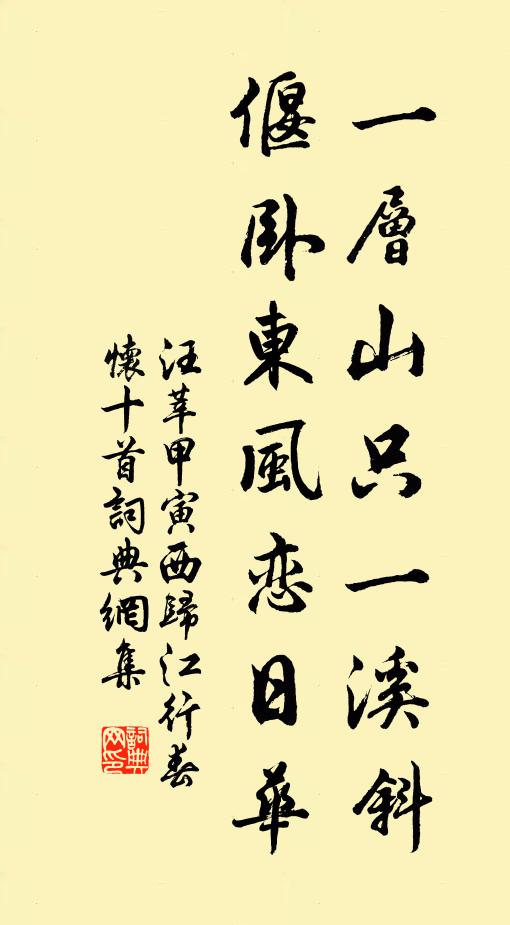 一層山只一溪斜
偃卧東風恋日華
汪莘甲寅西歸江行春
懷十首詞典網集
詞典
网印